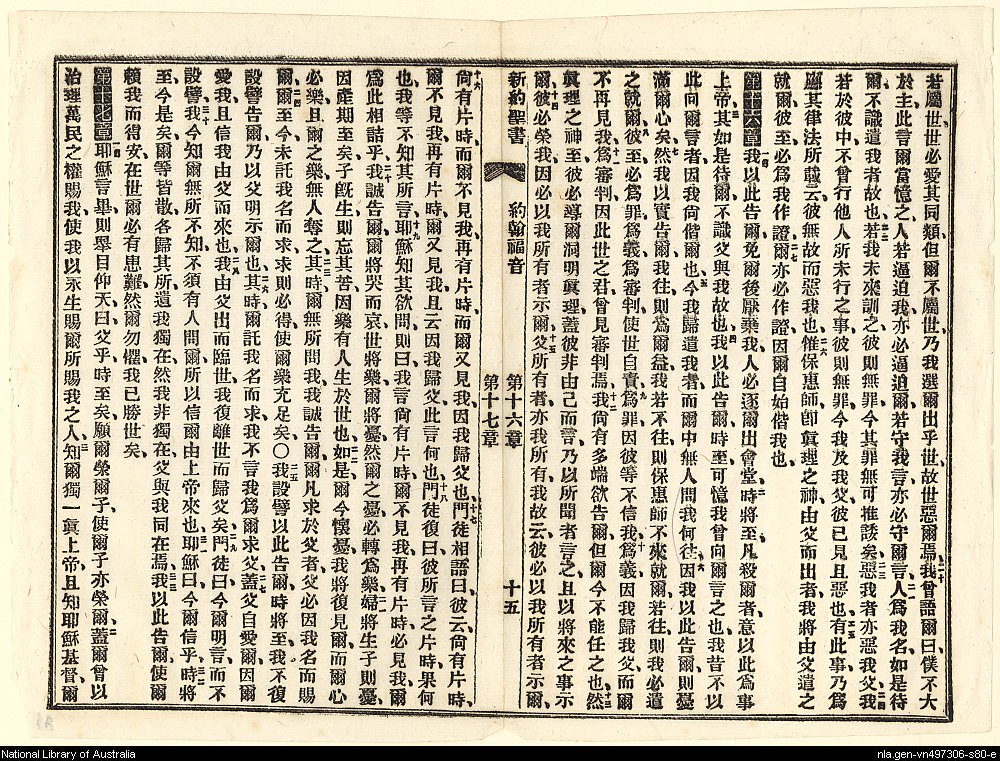 若屬世世必愛其同類但爾不屬世乃我選爾出乎世故世惡爾焉二十我曾語爾曰僕不大
於主此言爾當憶之人若逼迫我亦必逼迫爾若守我言亦必守爾言二一人爲我名如是待
爾不識遣我者故也二二若我未來訓之彼則無罪今其罪無可推諉矣二三惡我者亦惡我父二四我
若於彼中不曾行他人所未行之事彼則無罪今我及我父彼已見且惡也二五有此事乃爲
應其律法所載云彼無故而惡我也二六惟保惠師卽眞理之神由父而出者我將由父遣之
就爾彼至必爲我作證二七爾亦必作證因爾自始偕我也
第十六章一我以此告爾免爾後厭棄我二人必逐爾出會堂時將至凡殺爾者意以此爲事
上帝三其如是待爾不識父與我故也四我以此告爾時至可憶我曾向爾言之也我昔不以
此向爾言者因我向偕爾也五今我歸遣我者而爾中無人問我何往六因我以此告爾則憂
滿爾心矣七然我以實告爾我往則爲爾益我若不往則保惠師不來就爾若往則我必遣
之就爾八彼至必爲罪爲義爲審判使世自責九爲罪因彼等不信我十爲義因我歸我父而爾
不再見我十一爲審判因此世之君曾見審判焉十二我尙有多端欲告爾但爾今不能任之也十三然
眞理之神至彼必導爾洞明眞理蓋彼非由己而言乃以所聞者言之且以將來之事示
爾十四彼必榮我因必以我所有者示爾十五父所有者亦我所有我故云彼必以我所有者示爾
新約聖書 約翰福音 第十六章 第十七章 十五
十六尙有片時而爾不見我再有片時而爾又見我因我歸父也十七門徒相語曰彼云尙有片時
爾不見我再有片時爾又見我且云因我歸父此言何也十八門徒復曰彼所言之片時果何
也我等不知其所言十九耶穌知其欲問則曰我言尙有片時爾不見我再有片時必見我爾
爲此相詰乎二十我誠告爾爾將哭而哀世將樂爾將憂然爾之憂必轉爲樂二一婦將生子則憂
因產期至矣子旣生則忘其苦因樂有人生於世也二二如是爾今懷憂我將復見爾而爾心
必樂且爾之樂無人奪之二三其時爾無所問我我誠告爾爾凡求於父者父必因我名而賜
爾二四爾至今未託我名而求求則必得使爾樂充足矣〇二五我設譬以此告爾時將至我不復
設譬告爾乃以父明示爾也二六其時爾託我名而求我不言我爲爾求父二七蓋父自愛爾因爾
愛我且信我由父而來也二八我由父出而臨世我復離世而歸父矣二九門徒曰今爾明言而不
設譬三十我今知爾無所不知不須有人問爾所以信爾由上帝來也三一耶穌曰今爾信乎三二時將
至今是矣爾等皆散各歸其所遺我獨在然我非獨在父與我同在焉三三我以此告爾使爾
賴我而得安在世爾必有患難然爾勿懼我已勝世矣
第十七章一耶穌言畢則舉目仰天曰父乎時至矣願爾榮爾子使爾子亦榮爾二蓋爾曾以
治理萬民之權賜我使我以永生賜爾所賜我之人三知爾獨一眞上帝且知耶穌基督爾
National Library of Australia
nla.gen-vn497306-s80-e